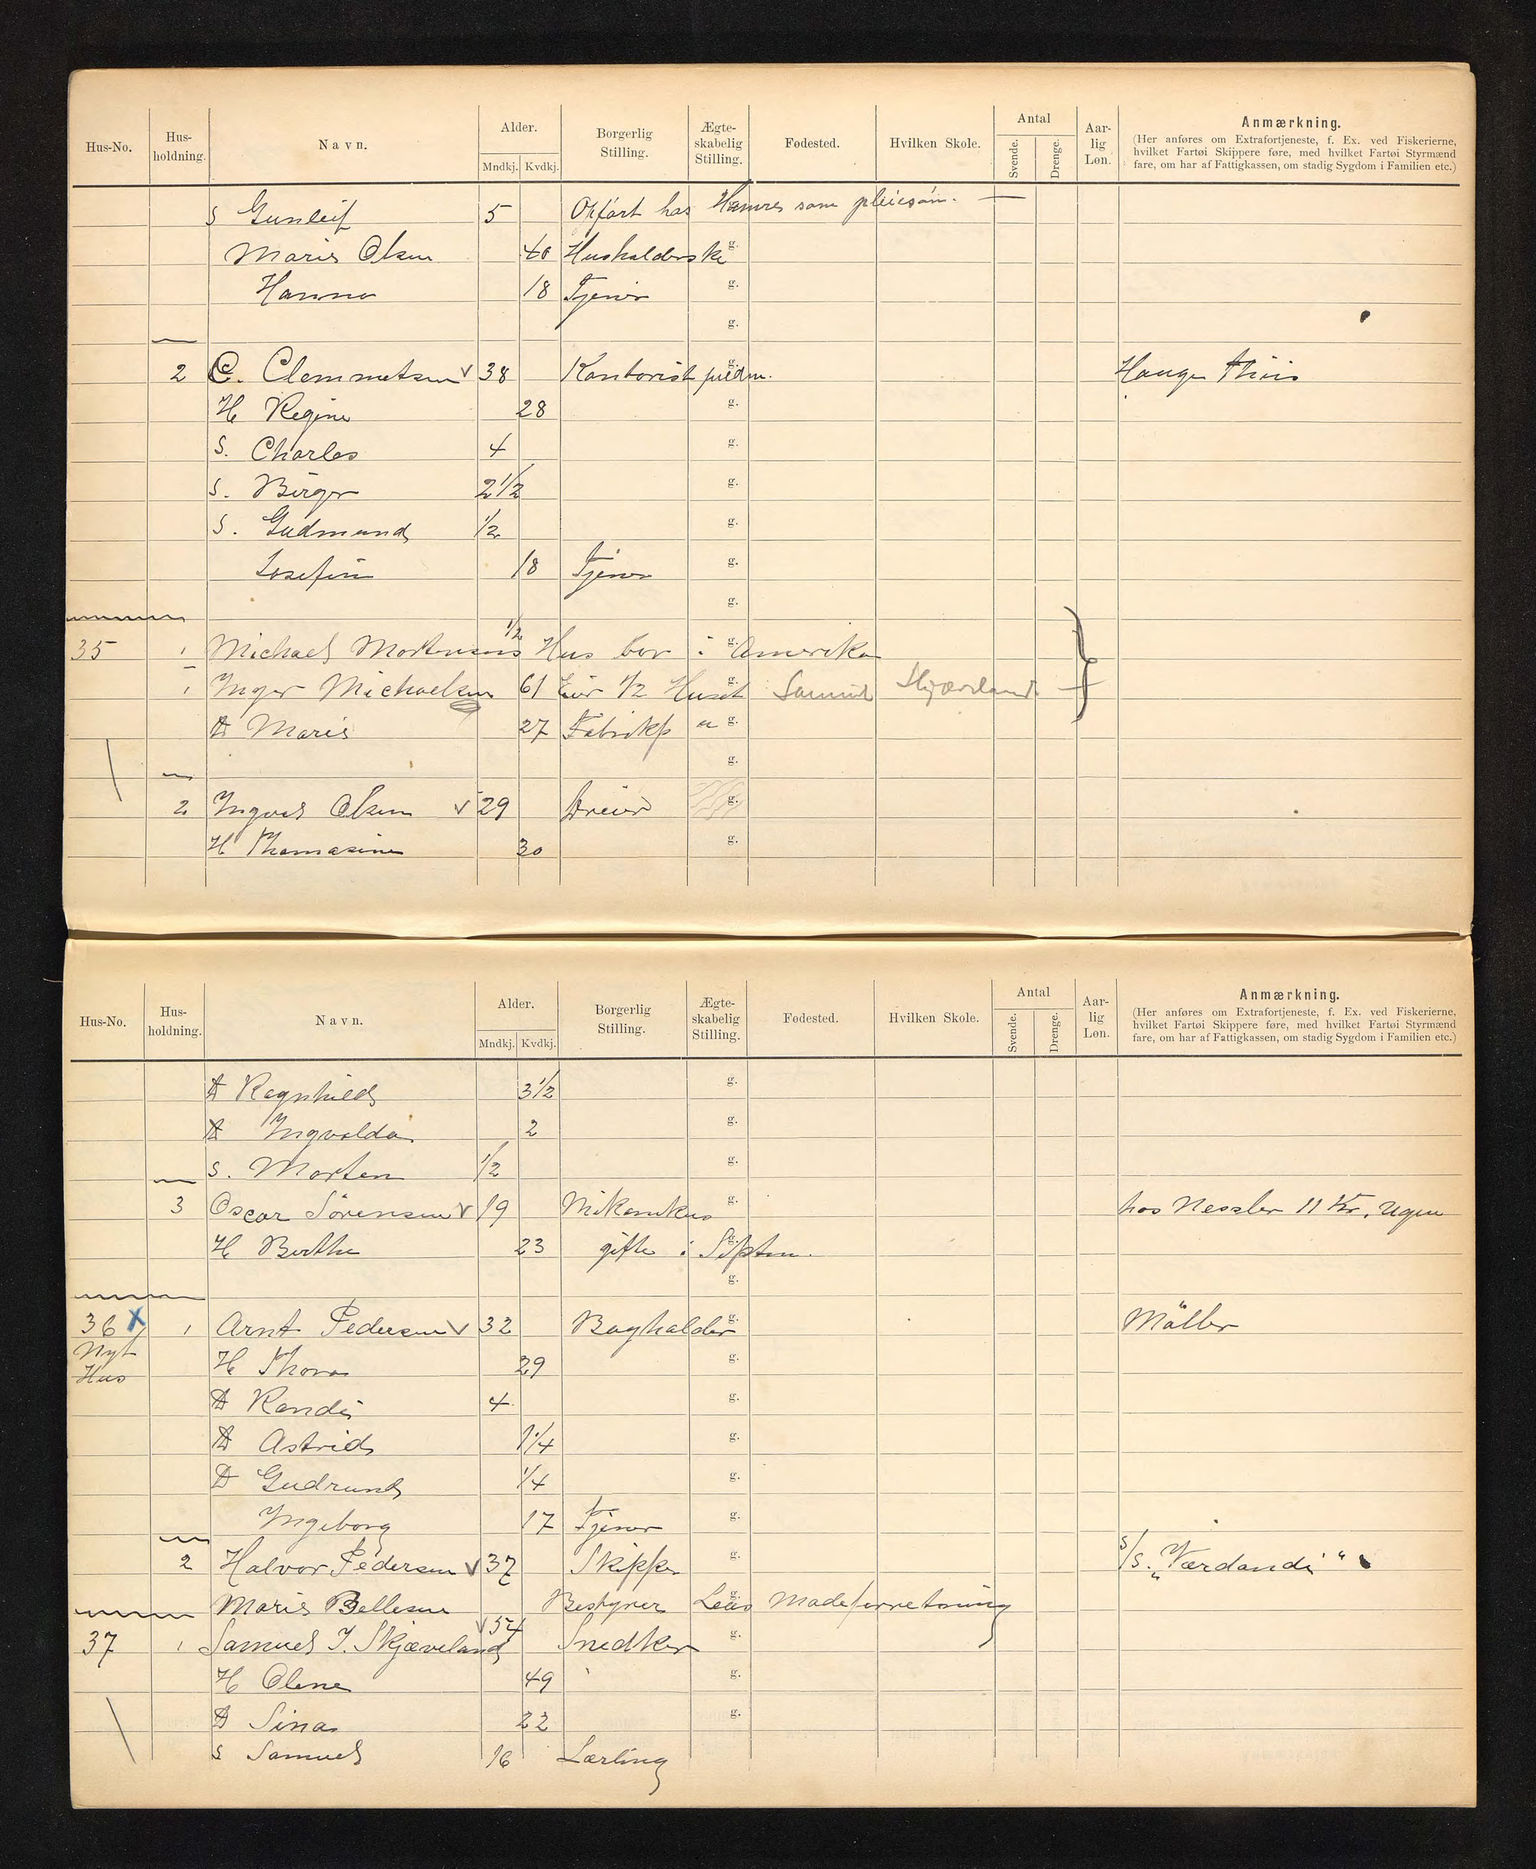 Hus-No. Hus-holdning. Navn. Alder. Mndkj. Kvdkj. Borgerlig Stilling. Ægte-skabelig Stilling. Fødested. Hvilken Skole. Antal Svende. Drenge. Aar-lig Løn. Anmærkning.
(Her anføres om Extrafortjeneste, f. Ex. ved Fiskerierne,
hvilket Fartøi Skippere føre, med hvilket Fartøi Styrmænd
fare, om har af Fattigkassen, om stadig Sygdom i Familien etc.)
S Gunleif 5 Opfört hos Hamres som pleiesön. —
Marie Olsen 40 Husholderske g.
Hanna 18 Tjener g.
g.
2 C. Clemmetsen v 38 Kontorist g. Hauge Thiis
H Regine 28 g.
S. Charles 4 g.
S. Birger 2 1/2 g.
S. Gudmund 1/2 g.
Josefine 18 Tjener g.
g.
35 1 Michael Mortensens 1/2 Hus bor i g. Amerika
1 Inger Michaelsen 61 Eier 1/2 Huset g. Samuel Skjæveland
D Marie 27 Fabrikp u g.
g.
2 Ingvald Olsen v 29 Dreier g.
H Thomasine 30 g.
Hus-No. Hus-holdning. Navn. Alder. Mndkj. Kvdkj. Borgerlig Stilling. Ægte-skabelig Stilling. Fødested. Hvilken Skole. Antal Svende. Drenge. Aar-lig Løn. Anmærkning.
(Her anføres om Extrafortjeneste, f. Ex. ved Fiskerierne,
hvilket Fartøi Skippere føre, med hvilket Fartøi Styrmænd
fare, om har af Fattigkassen, om stadig Sygdom i Familien etc.)
D Ragnhild 3 1/2 g.
D Ingvalda 2 g.
S. Morten 1/2 g.
3 Oscar Sörensen v 19 Mekanikus g. hos Nessler 11 Kr. Ugen
H Berthe 23 gifte i g. Septem.
g.
36 X 1 Arnt Pedersen v 32 Bogholder g. Möller
Nyt
Hus H Thora 29 g.
D Randi 4 g.
D Astrid 1 1/4 g.
D Gudrund 1/4 g.
Ingeborg 17 Tjener g.
2 Halvor Pedersen v 37 Skipper g. S/S. „Værdandi"
Marie Bellesen Bestyrer g. Modeforretning
37 1 Samuel J. Skjæveland v 54 Snedker g.
H Olene 49 g.
D Sina 22 g.
S Samuel 16 Lærling